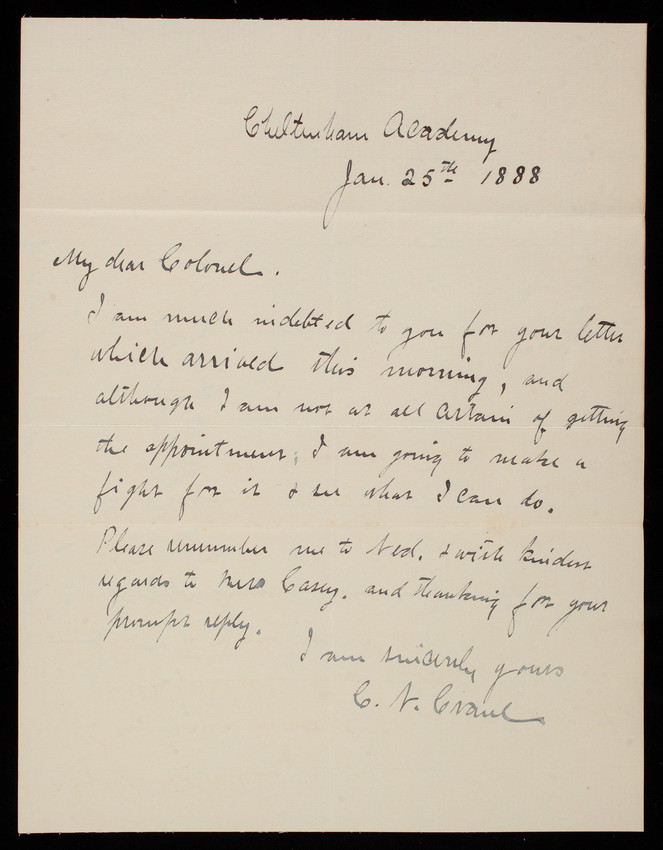 Cheltenham Academy
Jan. 25th 1888
My dear Colonel.
I am much indebted to you for your letter
which arrived this morning, and
although I am not at all certain of getting
the appointment, I am going to make a
fight for it & see what I can do.
Please remember me to Ned. & with kindest
regards to Mrs Casey. and thanking for your
prompt reply.
I am sincerely yours
C. N.